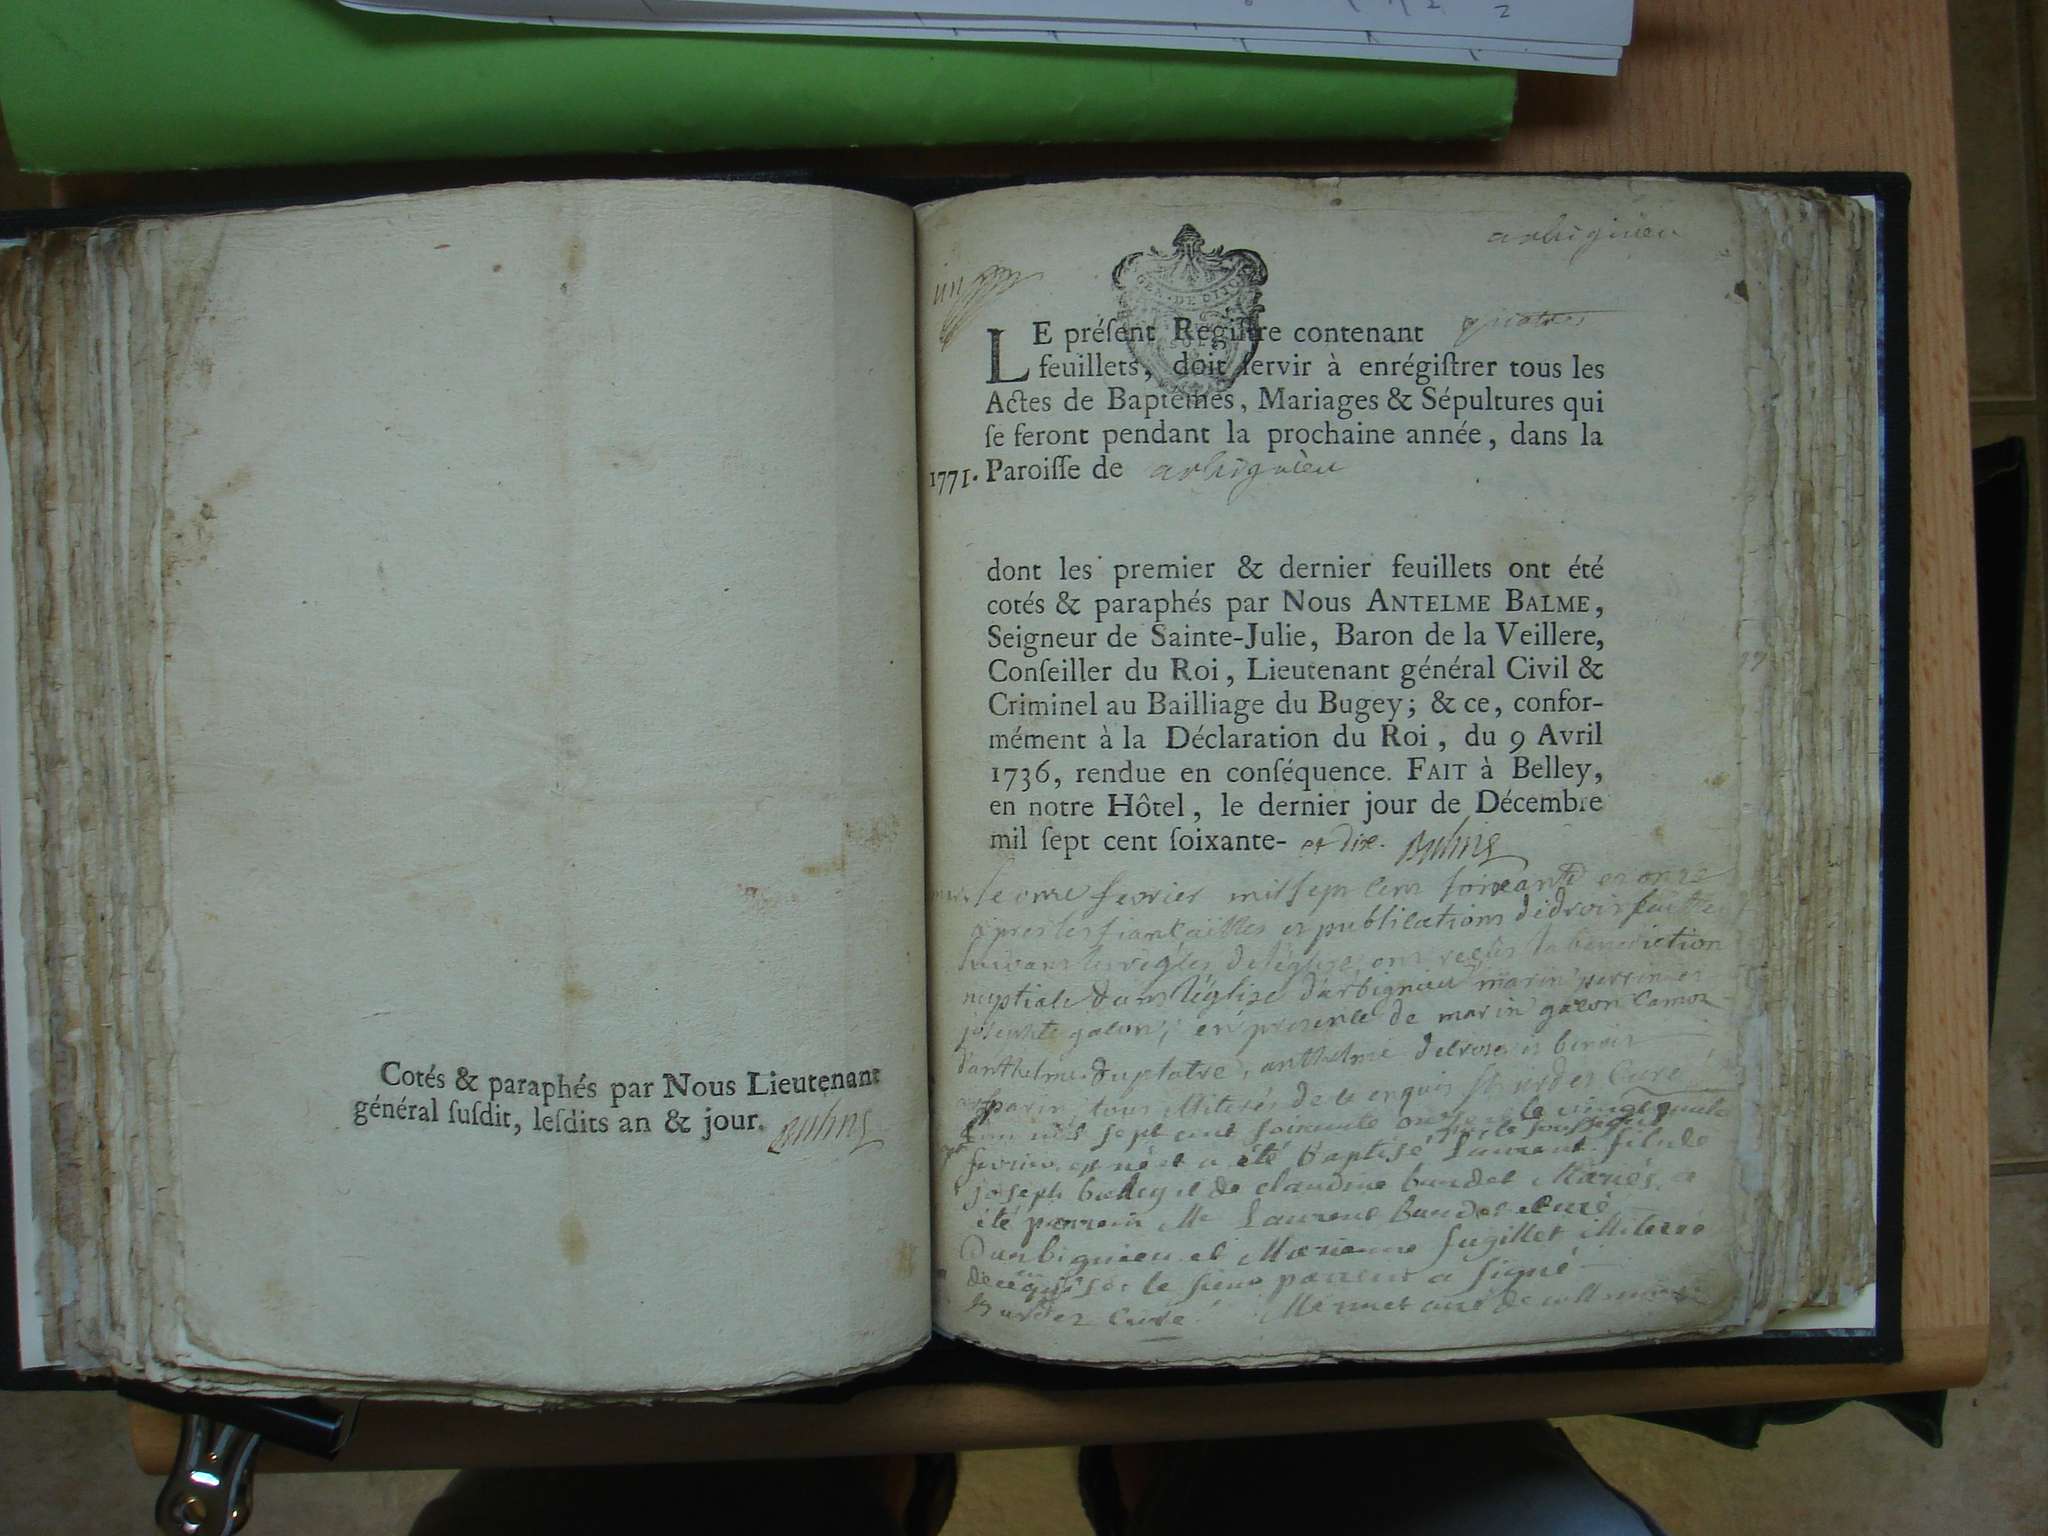 Cotés & paraphés par Nous Lieutenant
général ſuſdit, leſdits an & jour.
arbignieu
un
GEN. DE DIJON
LE préſent Regiſtre contenant quatre
feuillets, doit ſervir à enrégiſtrer tous les
Actes de Baptêmes, Mariages & Sépultures qui
ſe feront pendant la prochaine année, dans la
1771. Paroiſſe de arbignieu
dont les premier & dernier feuillets ont été
cotés & paraphés par Nous ANTELME BALME,
Seigneur de Sainte-Julie, Baron de la Veillere,
Conſeiller du Roi, Lieutenant général Civil &
Criminel au Bailliage du Bugey; & ce, confor-
mément à la Déclaration du Roi, du 9 Avril
1736, rendue en conſéquence. FAIT à Belley,
en notre Hôtel, le dernier jour de Décembre
mil ſept cent ſoixante- et dix.
le onze fevrier mil sept cent soixante et onze
apres les fiancailles et publications de droit faittes
suivant les regles de l'église ont reçus la benediction
nuptiale dans l'église d'arbignieu marin perrin et
josephte galon, en presence de marin galon
d'anthelme duplatre, anthelme et benoit
parin tous illiterés de ce enquis curé
l'an mil sept cent soixante onze et le vingt quatre
fevrier est né et a été Baptisé Laurent fils de
joseph et de claudine burdet Mariés, a
été parrein Mr Laurent Burdet curé
D'arbignieu et Marianne fugillet illiteréé
de ce enquise le sieur parrein a signé
burdet curé Mermet curé de